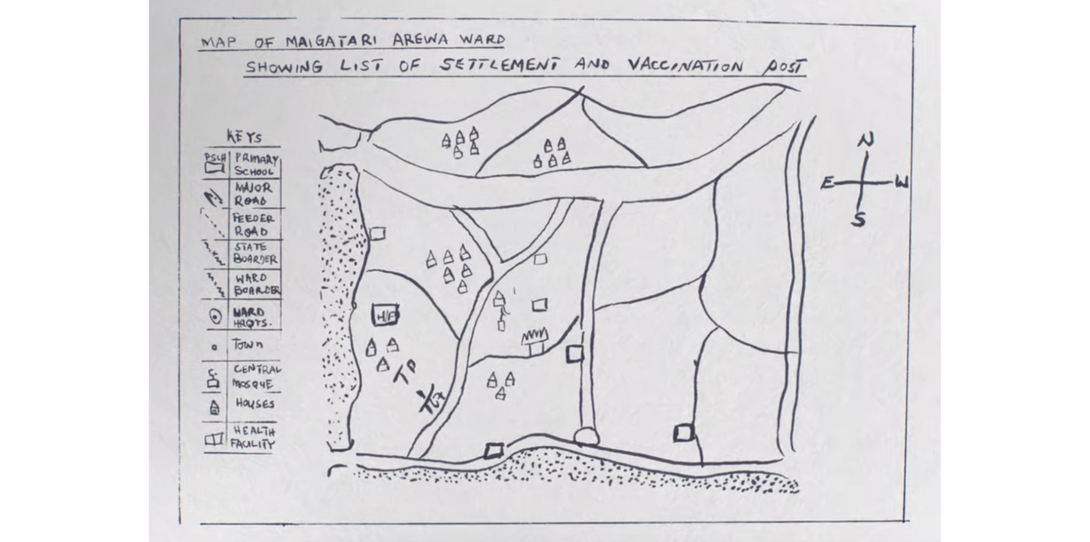 MAP OF MAIGATARI AREWA WARD
SHOWING LIST OF SETTLEMENT AND VACCINATION POST
KEYS
PSCH PRIMARY
SCHOOL
MAJOR
ROAD
FEEDER
ROAD
STATE
BOARDER
WARD
BOARDER
WARD
HRQTS.
TOWN
CENTRAL
MOSQUE
HOUSES
HEALTH
FACILITY
N
E W
S
H/F
TP